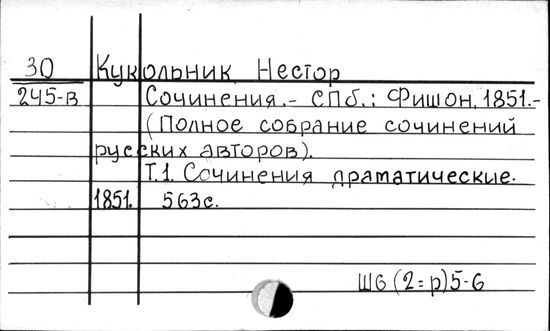 30 Кукольник, Нестор
245-в Сочинения.- СПб.: Фишон, 1851.-
(Полное собрание сочинений
русских авторов).
Т.1. Сочинения драматические.
1851. 563с.
Ш6(2=р)5-6